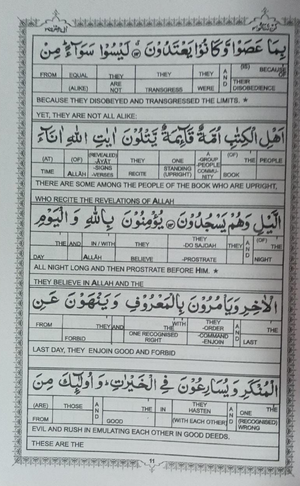 بِمَا عَصَوْا وَّكَانُوْا يَعْتَدُوْنَ لَيْسُوْا سَوَآءً مِنْ
FROM EQUAL (ALIKE) THEY ARE NOT THEY TRANSGRESS THEY WERE AND (IS) BECAUSE OF THEIR DISOBEDIENCE
BECAUSE THEY DISOBEYED AND TRANSGRESSED THE LIMITS. *
YET, THEY ARE NOT ALL ALIKE:
اَهْلِ الْكِتٰبِ اُمَّةٌ قَآئِمَةٌ يَّتْلُوْنَ اٰيٰتِ اللّٰهِ اٰنَآءَ
(AT) TIME (OF) ALLĀH (REVEALED) -ĀYĀT -SIGNS -VERSES THEY RECITE ONE STANDING (UPRIGHT) A -GROUP -PEOPLE COMMUNITY (OF) THE PEOPLE BOOK
THERE ARE SOME AMONG THE PEOPLE OF THE BOOK WHO ARE UPRIGHT,
WHO RECITE THE REVELATIONS OF ALLAH
الَّيْلِ وَهُمْ يَسْجُدُوْنَ يُؤْمِنُوْنَ بِاللّٰهِ وَالْيَوْمِ
THE AND DAY IN / WITH ALLĀH THEY BELIEVE THEY -DO SAJDAH -PROSTRATE THEY AND (OF) THE NIGHT
ALL NIGHT LONG AND THEN PROSTRATE BEFORE HIM. *
THEY BELIEVE IN ALLAH AND THE
الْاٰخِرِ وَيَاْمُرُوْنَ بِالْمَعْرُوْفِ وَيَنْهَوْنَ عَنِ
FROM THEY FORBID AND THE WITH ONE RECOGNISED RIGHT THEY -ORDER -COMMAND -ENJOIN AND THE LAST
LAST DAY, THEY ENJOIN GOOD AND FORBID
الْمُنْكَرِ وَيُسَارِعُوْنَ فِى الْخَيْرٰتِ وَاُولٰٓئِكَ مِنَ
(ARE) FROM THOSE AND THE GOOD IN THEY HASTEN (WITH EACH OTHER) AND THE ONE (RECOGNISED) WRONG
EVIL AND RUSH IN EMULATING EACH OTHER IN GOOD DEEDS.
THESE ARE THE
11